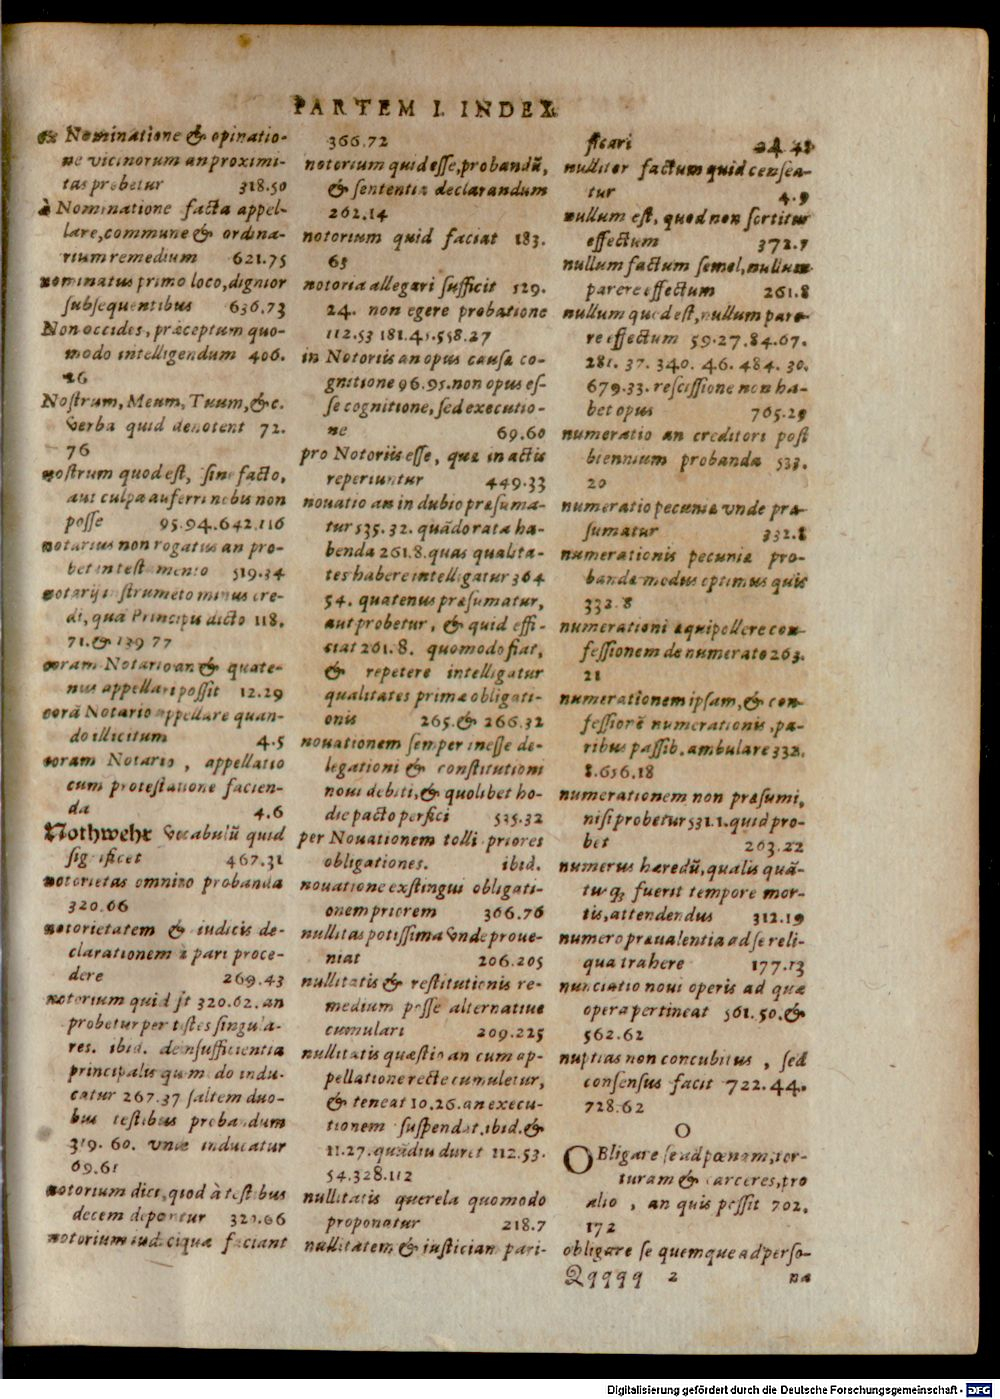 PARTEM I. INDEX.
ex Nominatione & opinatio-
ne vicinorum an proximi-
tas probetur 318.50
à Nominatione facta appel-
lare, commune & ordina-
rium remedium 621.75
nominatus primo loco, dignior
subsequentibus 636.73
Non occides, præceptum quo-
modo intelligendum 406.
26
Nostrum, Meum, Tuum, &c.
verba quid denotent 72.
76
nostrum quod est, sine facto,
aut culpa auferri nobis non
posse 95.94.642.116
notarius non rogatus an pro-
bet in testamento 519.34
notarij instrumēto minus cre-
di, quā Principis dicto 118.
71. & 139 77
coram Notario an & quate-
nus appellari possit 12.29
corā Notario appellare quan-
do illicitum 4.5
coram Notario, appellatio
cum protestatione facien-
da 4.6
Nothwehr vocabulū quid
significet 467.31
notorietas omnino probanda
320.66
notorietatem & iudicis de-
clarationem à pari proce-
dere 269.43
notorium quid sit 320.62. an
probetur per testes singula-
res. ibid. de insufficientia
principalis quomodo indu-
catur 267.37 saltem duo-
bus testibus probandum
319. 60. vnde inducatur
69.61
notorium dici, quod à testibus
decem deponitur 320.66
notorium iudici quæ faciant
366.72
notorium quid esse, probandū,
& sententia declarandum
262.14
notorium quid faciat 183.
65
notoria allegari sufficit 529.
24. non egere probatione
112.53 181.41.558.27
in Notoriis an opus causæ co-
gnitione 96.95. non opus es-
se cognitione, sed executio-
ne 69.60
pro Notoriis esse, quæ in actis
reperiuntur 449.33
nouatio an in dubio præsuma-
tur 535.32. quādo rata ha-
benda 261.8. quas qualita-
tes habere intelligatur 364
54. quatenus præsumatur,
aut probetur, & quid effi-
ciat 261.8. quomodo fiat,
& repetere intelligatur
qualitates primæ obligati-
onis 265. & 266.32
nouationem semper inesse de-
legationi & constitutioni
noui debiti, & quolibet ho-
die pacto perfici 535.32
per Nouationem tolli priores
obligationes. ibid.
nouatione exstingui obligati-
onem priorem 366.76
nullitas potissima vnde proue-
niat 206.205
nullitatis & restitutionis re-
medium posse alternatiue
cumulari 209.225
nullitatis quæstio an cum ap-
pellatione recte cumuletur,
& teneat 10.26. an execu-
tionem suspendat. ibid. &
11.27. quādiu duret 112.53.
54.328.112
nullitatis querela quomodo
proponatur 218.7
nullitatem & iusticiam pari-
ficari 24 41
nulliter factum quid censea-
tur 4.9
nullum est, quod non sortitur
effectum 372.7
nullum factum semel, nullum
parere effectum 261.8
nullum quod est, nullum pare-
re effectum 59.27.84.67.
281. 37. 340. 46. 484. 30.
679.33. rescissione non ha-
bet opus 765.29
numeratio an creditori post
biennium probanda 533.
20
numeratio pecuniæ vnde præ-
sumatur 332.8
numerationis pecuniæ pro-
bandæ modus optimus quis
332.8
numerationi æquipollere con-
fessionem de numerato 263.
21
numerationem ipsam, & con-
fessionē numerationis, pa-
ribus passib. ambulare 332.
8.656.18
numerationem non præsumi,
nisi probetur 531.1. quid pro-
bet 263.22
numerus hæredū, qualis quā-
tusq; fuerit tempore mor-
tis, attendendus 312.19
numero præualentia ad se reli-
qua trahere 177.13
nunciatio noui operis ad quæ
opera pertineat 561.50. &
562.62
nuptias non concubitus, sed
consensus facit 722.44.
728.62
O
OBligare se ad pœnam, tor-
turam & carceres, pro
alio, an quis possit 702.
172
obligare se quemque ad perso-
Qqqq 2 na
Digitalisierung gefördert durch die Deutsche Forschungsgemeinschaft - DFG